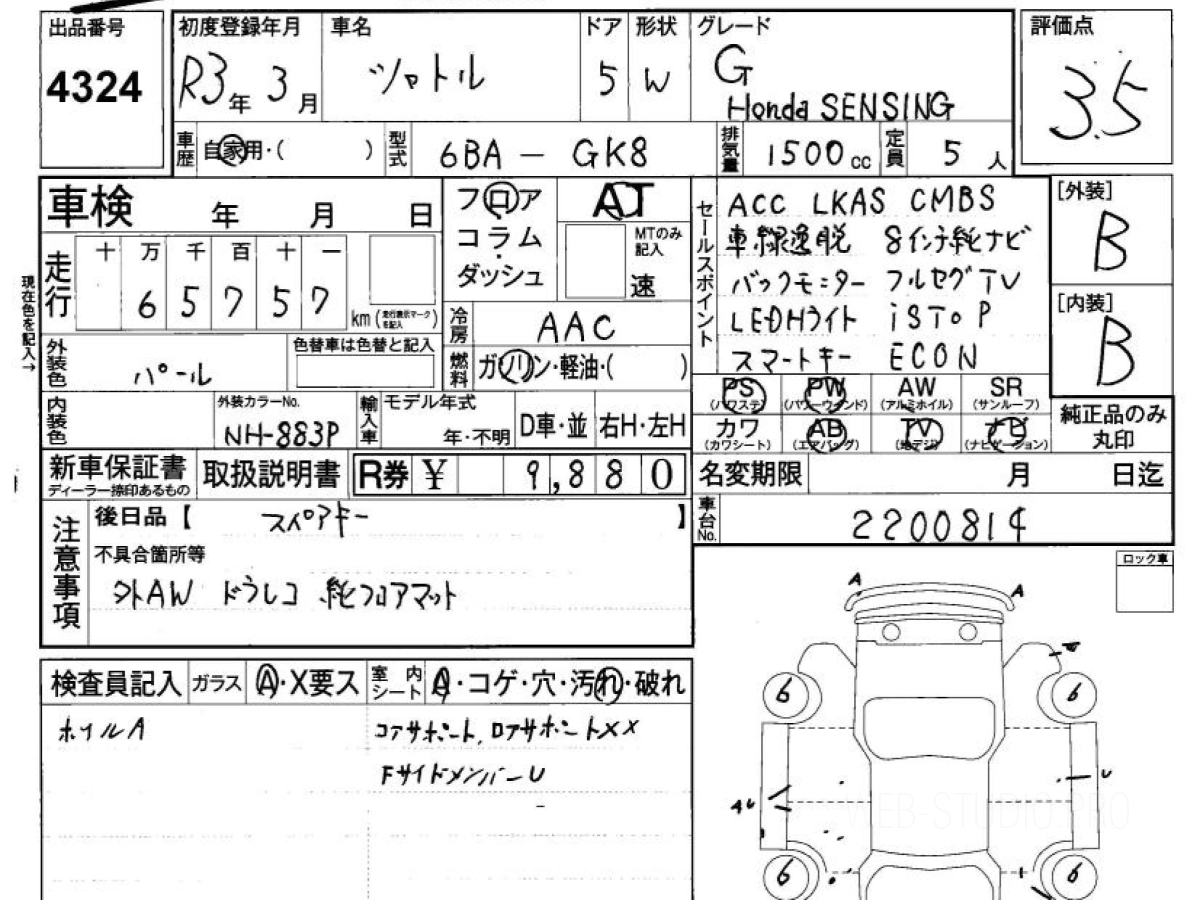 出品番号
4324
初度登録年月
R3年 3月
車名
シャトル
ドア
5
形状
W
グレード
G
Honda SENSING
評価点
3.5
車歴
自家用・( )
型式
6BA - GK8
排気量
1500cc
定員
5人
車検 年 月 日
走行
十 万 千 百 十 一
6 5 7 5 7
km(走行表示マークを記入)
現在色を記入→
フロア
コラム
ダッシュ
AT
MTのみ記入
速
冷房
AAC
燃料
ガソリン・軽油・( )
外装色
パール
色替車は色替と記入
内装色
外装カラーNo.
NH-883P
輸入車
モデル年式
年・不明
D車・並
右H・左H
セールスポイント
ACC LKAS CMBS
車線逸脱 8インチ純ナビ
バックモニター フルセグTV
LEDHライト iSToP
スマートキー ECON
[外装]
B
[内装]
B
PS
(パワステ)
PW
(パワーウインド)
AW
(アルミホイル)
SR
(サンルーフ)
カワ
(カワシート)
AB
(エアバッグ)
TV
(地デジ)
ナビ
(ナビゲーション)
純正品のみ
丸印
新車保証書
ディーラー捺印あるもの
取扱説明書
R券 ¥ 9,880
名変期限 月 日迄
車台No.
2200814
注意事項
後日品【 スペアキー 】
不具合箇所等
外AW ドラレコ 純フロアマット
ロック車
検査員記入
ガラス
A・X要ス
室内シート
A・コゲ・穴・汚れ・破れ
ホイルA
コアサポート, ロアサポートXX
FサイドメンバーU
A
A
6
6
AU
U
6
6
WEB-STUDIO.PRO